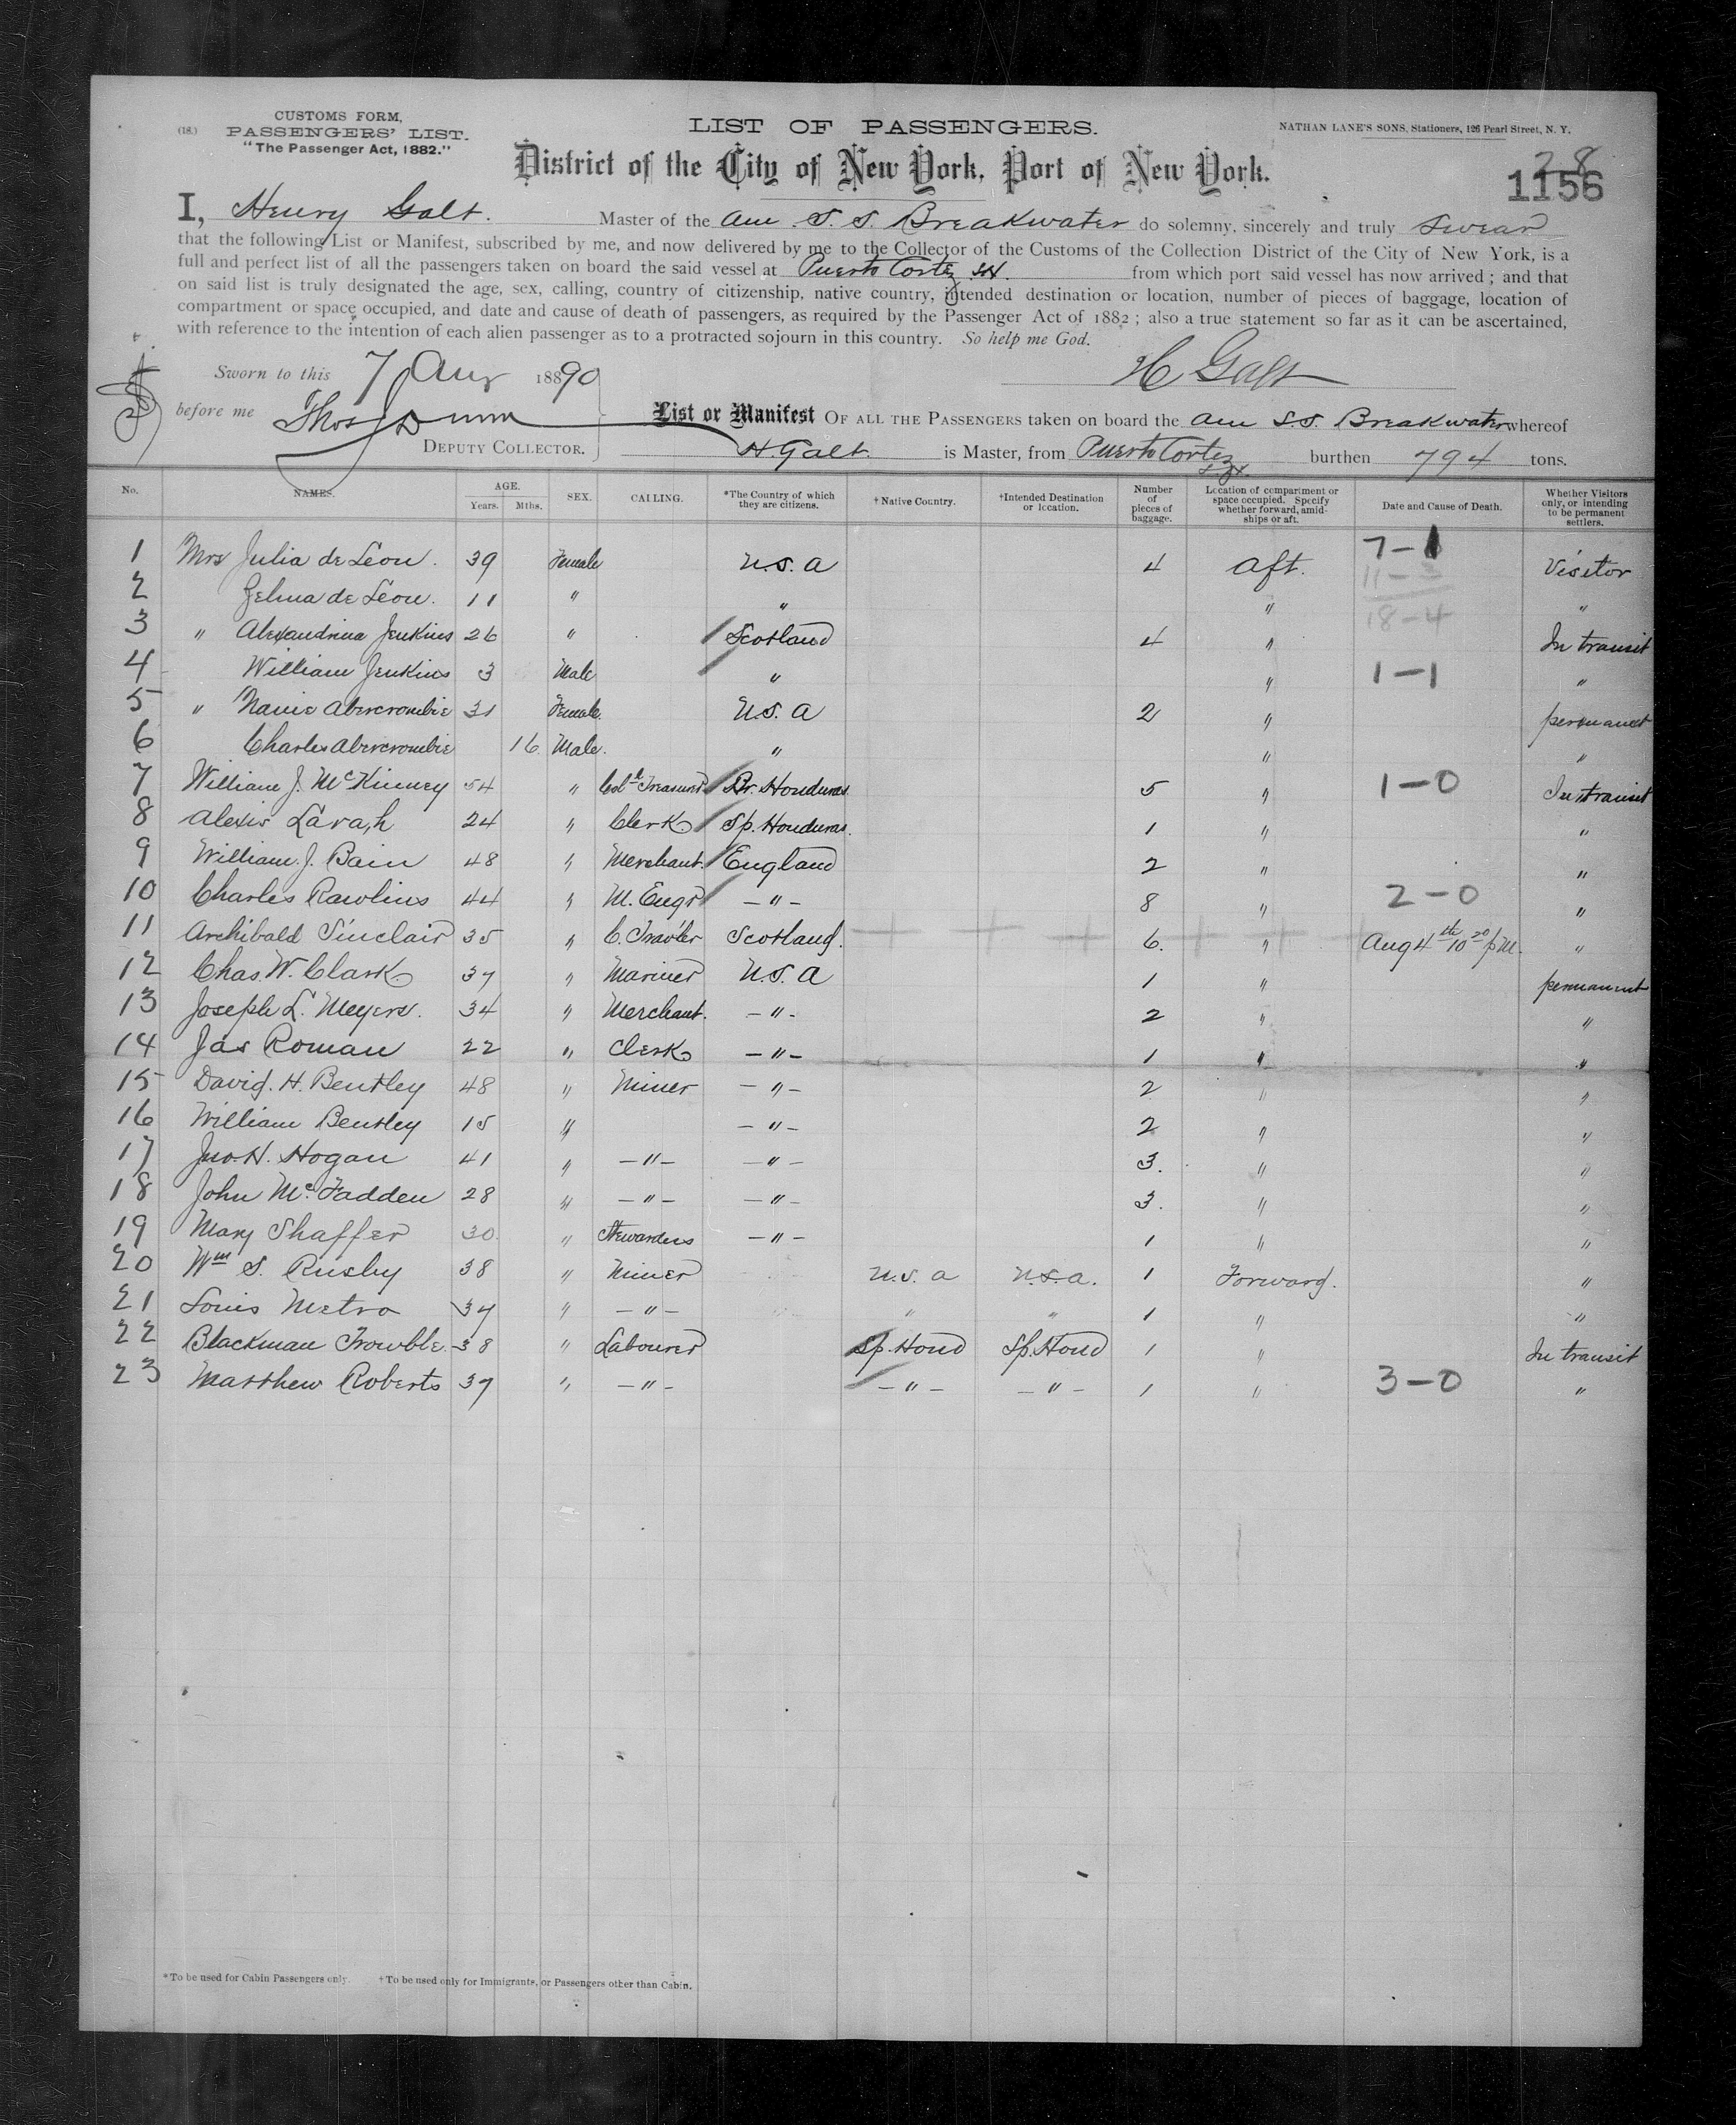 CUSTOMS FORM,
(18.) PASSENGERS' LIST.
"The Passenger Act, 1882."
LIST OF PASSENGERS.
NATHAN LANE'S SONS, Stationers, 126 Pearl Street, N. Y.
District of the City of New York, Port of New York.
28
1156
I, Henry Galt. Master of the Am. S. S. Breakwater do solemny, sincerely and truly swear
that the following List or Manifest, subscribed by me, and now delivered by me to the Collector of the Customs of the Collection District of the City of New York, is a
full and perfect list of all the passengers taken on board the said vessel at Puerto Cortez from which port said vessel has now arrived; and that
on said list is truly designated the age, sex, calling, country of citizenship, native country, intended destination or location, number of pieces of baggage, location of
compartment or space occupied, and date and cause of death of passengers, as required by the Passenger Act of 1882; also a true statement so far as it can be ascertained,
with reference to the intention of each alien passenger as to a protracted sojourn in this country. So help me God.
Sworn to this 7 Aug 18890
H Galt
before me Thos J Dunn
DEPUTY COLLECTOR.
List or Manifest OF ALL THE PASSENGERS taken on board the Am S.S. Breakwater whereof
H. Galt is Master, from Puerto Cortez burthen 794 tons.
No. NAMES. AGE. Years. Mths. SEX. CALLING. *The Country of which they are citizens. †Native Country. †Intended Destination or location. Number of pieces of baggage. Location of compartment or space occupied. Specify whether forward, amidships or aft. Date and Cause of Death. Whether Visitors only, or intending to be permanent settlers.
1 Mrs Julia de Leon. 39 Female U.S.A 4 Aft. 7-1 Visitor
2 Zelma de Leon. 11 " " " 11-3 "
18-4
3 " Alexandrina Jenkins 26 " Scotland 4 " In transit
4 William Jenkins 3 Male " " 1-1 "
5 " Nanie Abercrombie 31 Female. U.S.A 2 " permanent
6 Charles Abercrombie 16 Male. " " "
7 William J. McKinney 54 " Col'l Treasurer Br. Honduras 5 " 1-0 In transit
8 Alexis 24 " Clerk Sp. Honduras. 1 " "
9 William. J. Bain 48 " Merchant. England 2 " "
10 Charles Rawlins 44 " M. Engr -"- 8 " 2-0 "
11 Archibald Sinclair 35 " C. Trav'ler Scotland. 6. " Aug 4th 10 20 p.m. "
12 Chas. W. Clark 37 " Mariner U.S.A 1 " permanent
13 Joseph L. Meyers. 34 " Merchant. -"- 2 " "
14 Jas Roman 22 " Clerk -"- 1 " "
15 David. H. Bentley 48 " Miner -"- 2 " "
16 William Bentley 15 " -"- 2 " "
17 Jno. H. Hogan 41 " -"- -"- 3. " "
18 John McFadden 28 " -"- -"- 3. " "
19 Mary Shaffer 30. " Stewardess -"- 1 " "
20 Wm S. Rusby 38 " Miner U.S.A U.S.A. 1 Forward. "
21 Louis Metro 37 " -"- " " 1 " "
22 Blackman Trowble. 38 " Labourer Sp. Hond Sp. Hond 1 " In transit
23 Matthew Roberts 39 " -"- -"- -"- 1 " 3-0 "
*To be used for Cabin Passengers only. †To be used only for Immigrants, or Passengers other than Cabin.